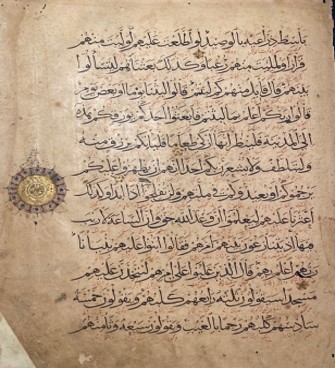 باسط ذراعيه بالوصيد لو اطلعت عليهم لوليت منهم
فرارا ولملئت منهم رعبا وكذلك بعثناهم ليتساءلوا
بينهم قال قائل منهم كم لبثتم قالوا لبثنا يوما او بعض يوم
قالوا ربكم اعلم بما لبثتم فابعثوا احدكم بورقكم هذه
الى المدينة فلينظر ايها ازكى طعاما فلياتكم برزق منه
وليتلطف ولا يشعرن بكم احدا انهم ان يظهروا عليكم
يرجموكم او يعيدوكم في ملتهم ولن تفلحوا اذا ابدا وكذلك
اعثرنا عليهم ليعلموا ان وعد الله حق وان الساعة لا ريب
فيها اذ يتنازعون بينهم امرهم فقالوا ابنوا عليهم بنيانا
ربهم اعلم بهم قال الذين غلبوا على امرهم لنتخذن عليهم
مسجدا سيقولون ثلثة رابعهم كلبهم ويقولون خمسة
سادسهم كلبهم رجما بالغيب ويقولون سبعة وثامنهم